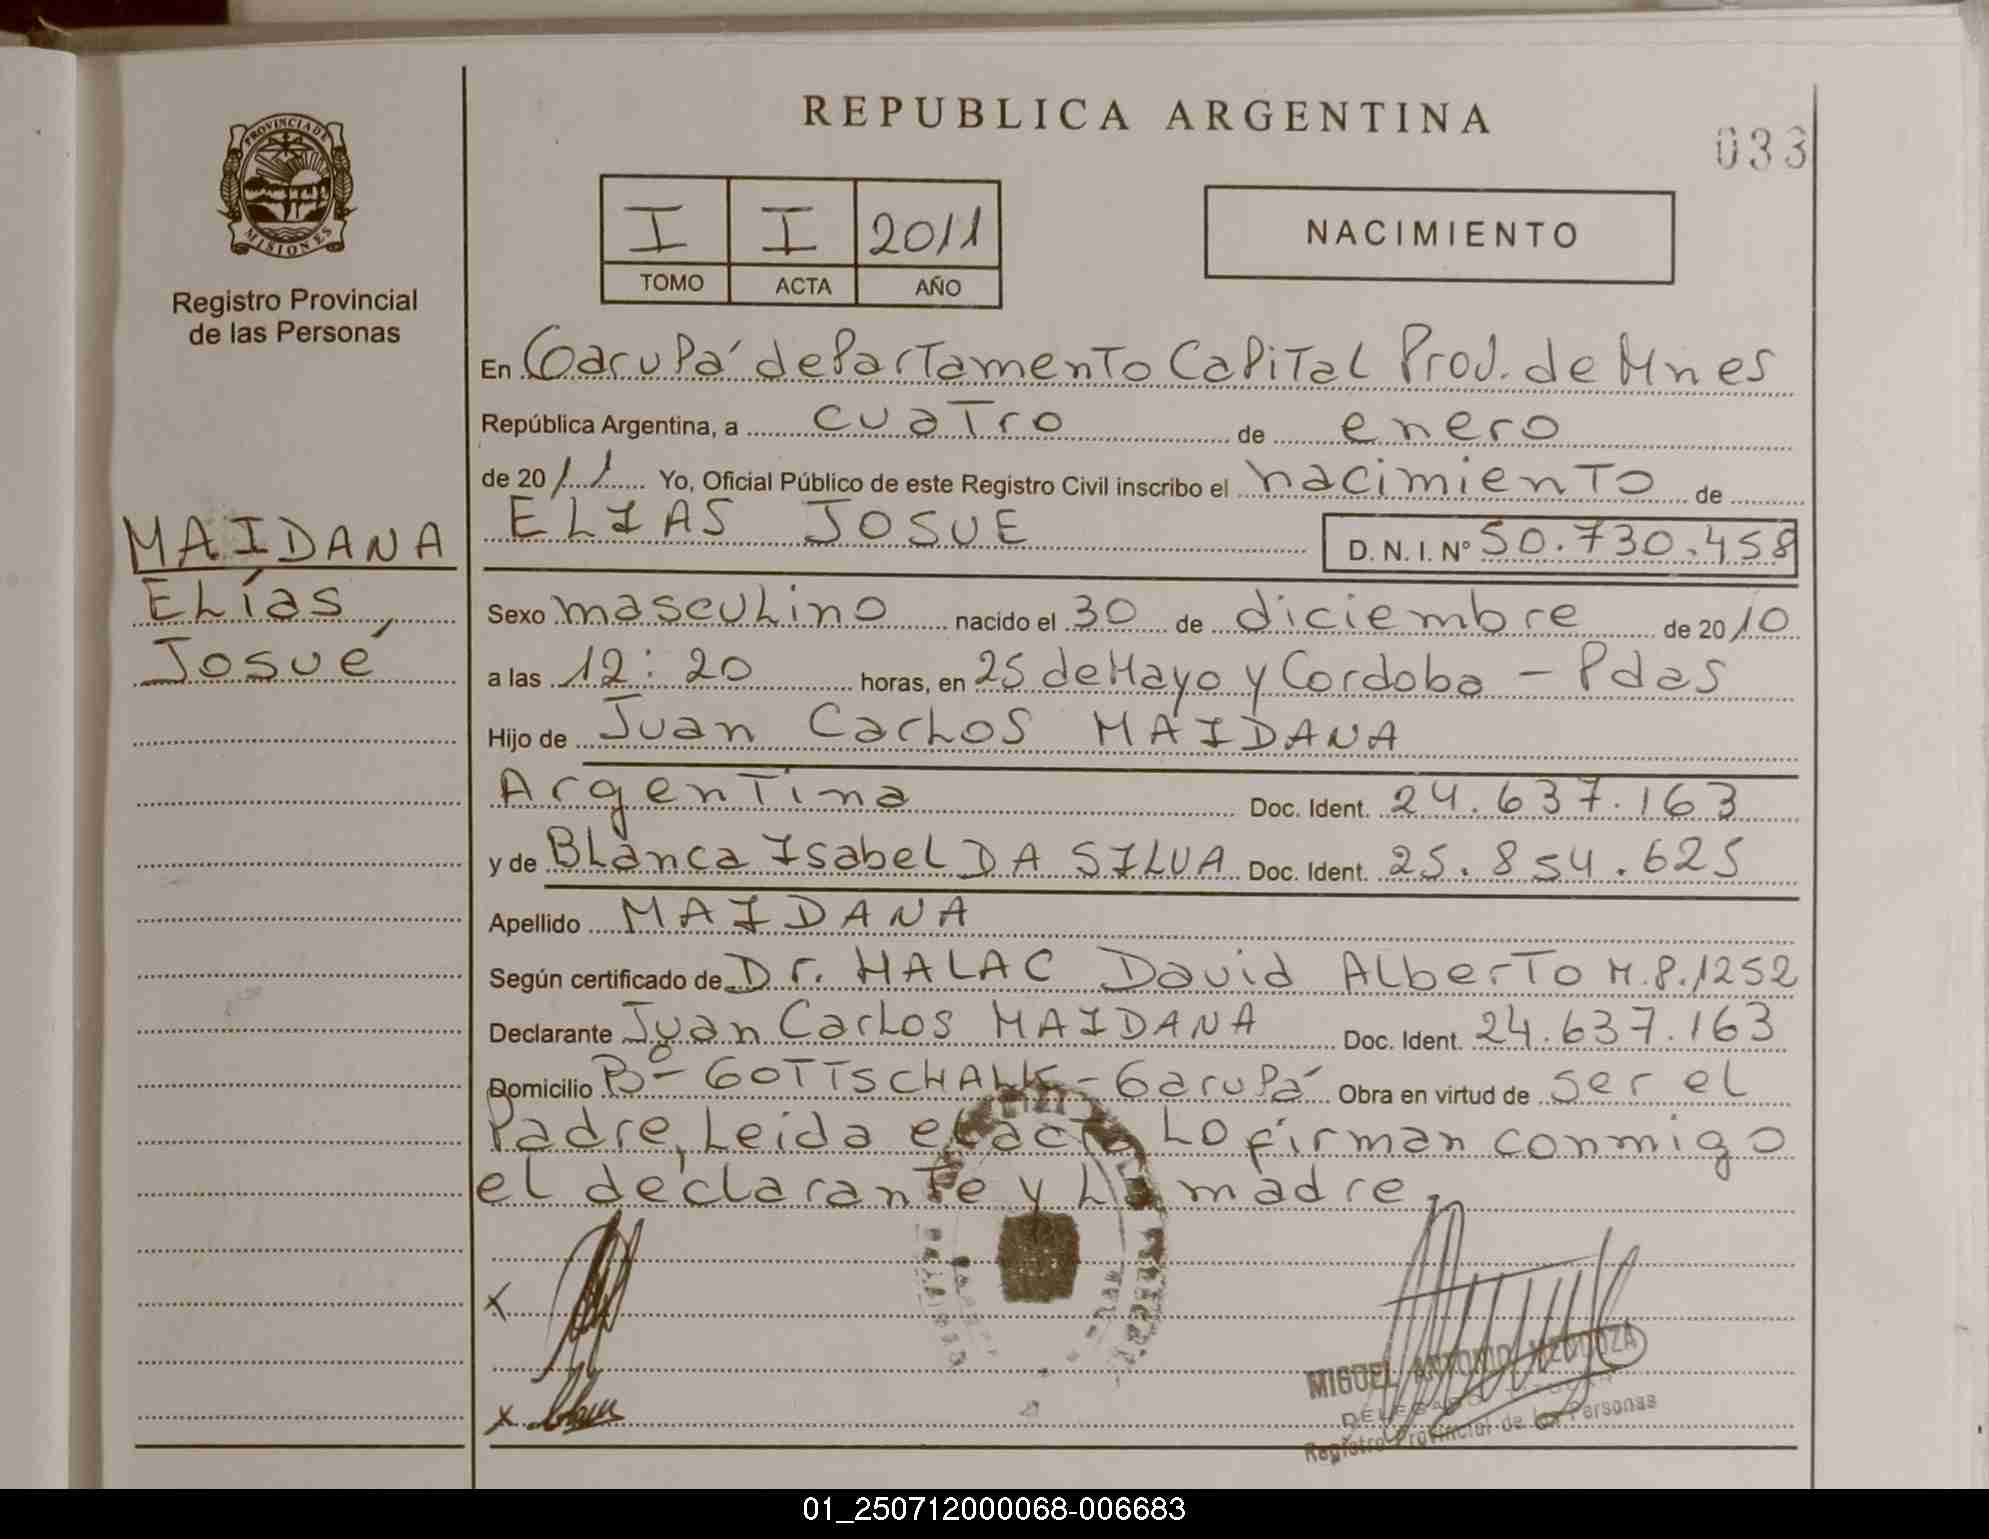 REPUBLICA ARGENTINA
033
PROVINCIA DE
MISIONES
Registro Provincial
de las Personas
I I 2011
TOMO ACTA AÑO
NACIMIENTO
En Garupá departamento Capital Prov. de Mnes
República Argentina, a cuatro de enero
de 2011 Yo, Oficial Público de este Registro Civil inscribo el nacimiento de
ELIAS JOSUE D. N. I. Nº 50.730.458
MAIDANA
Elías
Josué
Sexo masculino nacido el 30 de diciembre de 2010
a las 12:20 horas, en 25 de Mayo y Cordoba - Pdas
Hijo de Juan Carlos MAIDANA
Argentina Doc. Ident. 24.637.163
y de Blanca Isabel DA SILVA Doc. Ident. 25.854.625
Apellido MAIDANA
Según certificado de Dr. HALAC David Alberto M.P. 1252
Declarante Juan Carlos MAIDANA Doc. Ident. 24.637.163
Domicilio Bº - GOTTSCHALK - Garupá Obra en virtud de ser el
Padre, Leida el acta Lo firman conmigo
el declarante y La madre.
X
X
MIGUEL ANTONIO MENDOZA
DELEGADO
Registro Provincial de las Personas
01_250712000068-006683